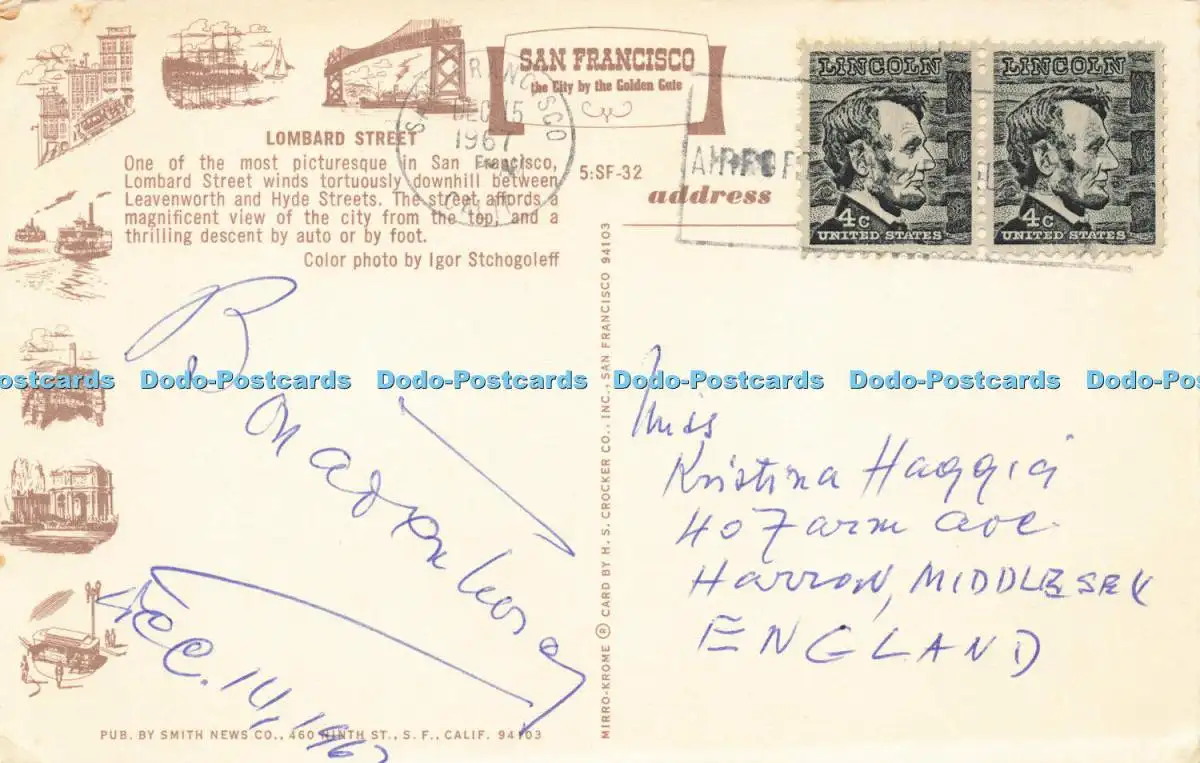 SAN FRANCISCO
the City by the Golden Gate
LOMBARD STREET
One of the most picturesque in San Francisco,
Lombard Street winds tortuously downhill between
Leavenworth and Hyde Streets. The street affords a
magnificent view of the city from the top, and a
thrilling descent by auto or by foot.
Color photo by Igor Stchogoleff
5:SF-32
address
SAN FRANCISCO
DEC 15
1967
LINCOLN
4c
UNITED STATES
LINCOLN
4c
UNITED STATES
Dec. 14, 1967
MIRRO-KROME ® CARD BY H. S. CROCKER CO., INC., SAN FRANCISCO 94103
Miss
Kristina Haggig
40 Farm Ave.
HARROW, MIDDLESEX
ENGLAND
PUB. BY SMITH NEWS CO., 460 NINTH ST., S. F., CALIF. 94103
Dodo-Postcards Dodo-Postcards Dodo-Postcards Dodo-Postcards